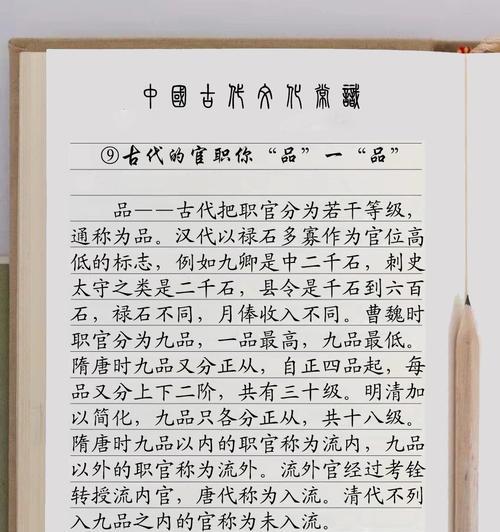 中國古代文化常識
⑨古代的官职你“品”一“品”
品——古代把职官分为若干等级，
通称为品。汉代以禄石多寡作为官位高
低的标志，例如九卿是中二千石，刺史
太守之类是二千石，县令是千石到六百
石，禄石不同，月俸收入不同。曹魏时
职官分为九品，一品最高，九品最低。
隋唐时九品又分正从，自正四品起，每
品又分上下二阶，共有三十级。明清加
以简化，九品只各分正从，共十八级。
隋唐时九品以内的职官称为流内，九品
以外的职官称为流外。流外官经过考铨
转授流内官，唐代称为入流。清代不列
入九品之内的官称为未入流。